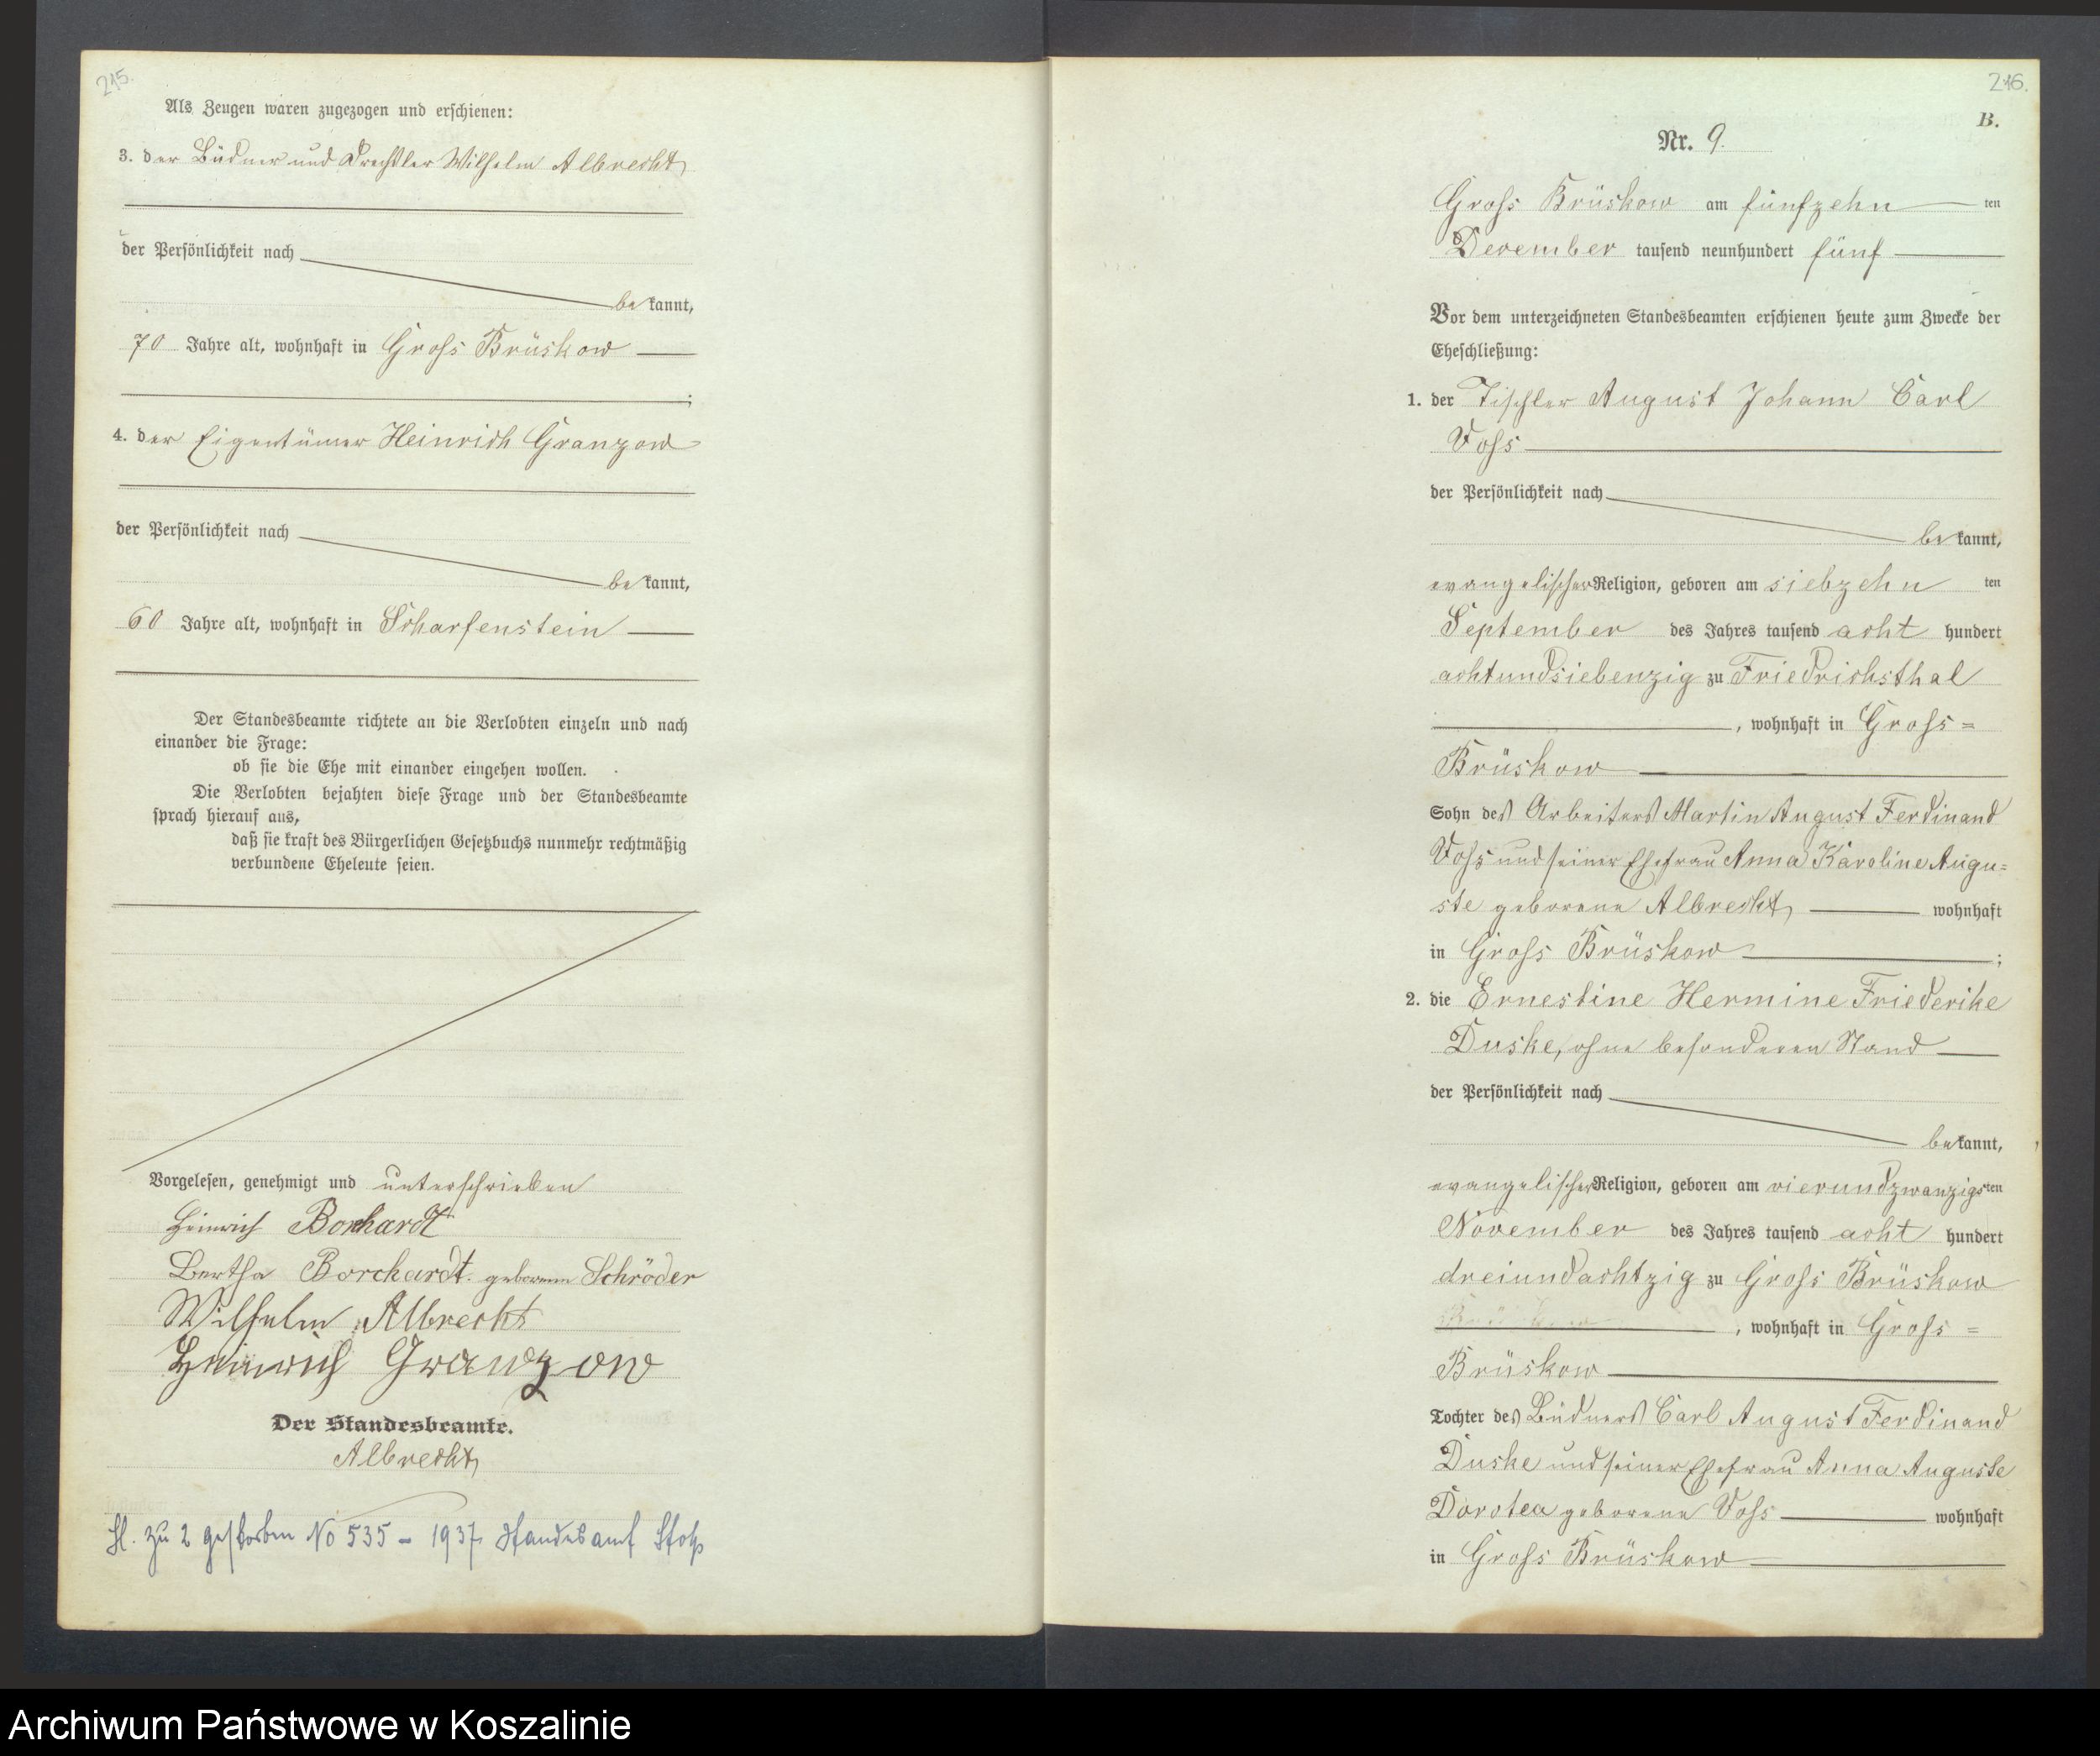 215.
Als Zeugen waren zugezogen und erschienen:
3. der Büdner und Drechsler Wilhelm Albrecht
der Persönlichkeit nach
be kannt,
70 Jahre alt, wohnhaft in Gross Brüskow
;
4. der Eigentümer Heinrich Granzow
der Persönlichkeit nach
be kannt,
60 Jahre alt, wohnhaft in Scharfenstein
Der Standesbeamte richtete an die Verlobten einzeln und nach
einander die Frage:
ob sie die Ehe mit einander eingehen wollen.
Die Verlobten bejahten diese Frage und der Standesbeamte
sprach hierauf aus,
daß sie kraft des Bürgerlichen Gesetzbuchs nunmehr rechtmäßig
verbundene Eheleute seien.
Vorgelesen, genehmigt und unterschrieben
Heinrich Borchardt
Bertha Borchardt geborenen Schröder
Wilhelm Albrecht
Heinrich Granzow
Der Standesbeamte.
Albrecht
H. zu 2 gestorben No 535 - 1937 Standesamt Stolp
216.
B.
Nr. 9.
Gross Brüskow am fünfzehn ten
Dezember tausend neunhundert fünf
Vor dem unterzeichneten Standesbeamten erschienen heute zum Zwecke der
Eheschließung:
1. der Tischler August Johann Carl
Voss
der Persönlichkeit nach
be kannt,
evangelischer Religion, geboren am siebzehn ten
September des Jahres tausend acht hundert
achtundsiebenzig zu Friedrichsthal
, wohnhaft in Gross=
Brüskow
Sohn des Arbeiters Martin August Ferdinand
Voss und seiner Ehefrau Anna Karoline Augu=
ste geborene Albrecht, wohnhaft
in Gross Brüskow ;
2. die Ernestine Hermine Friederike
Duske, ohne besonderen Stand
der Persönlichkeit nach
be kannt,
evangelischer Religion, geboren am vierundzwanzigsten
November des Jahres tausend acht hundert
dreiundachtzig zu Gross Brüskow
, wohnhaft in Gross=
Brüskow
Tochter des Büdners Carl August Ferdinand
Duske und seiner Ehefrau Anna Auguste
Dorotea geborene Voss wohnhaft
in Gross Brüskow
Archiwum Państwowe w Koszalinie